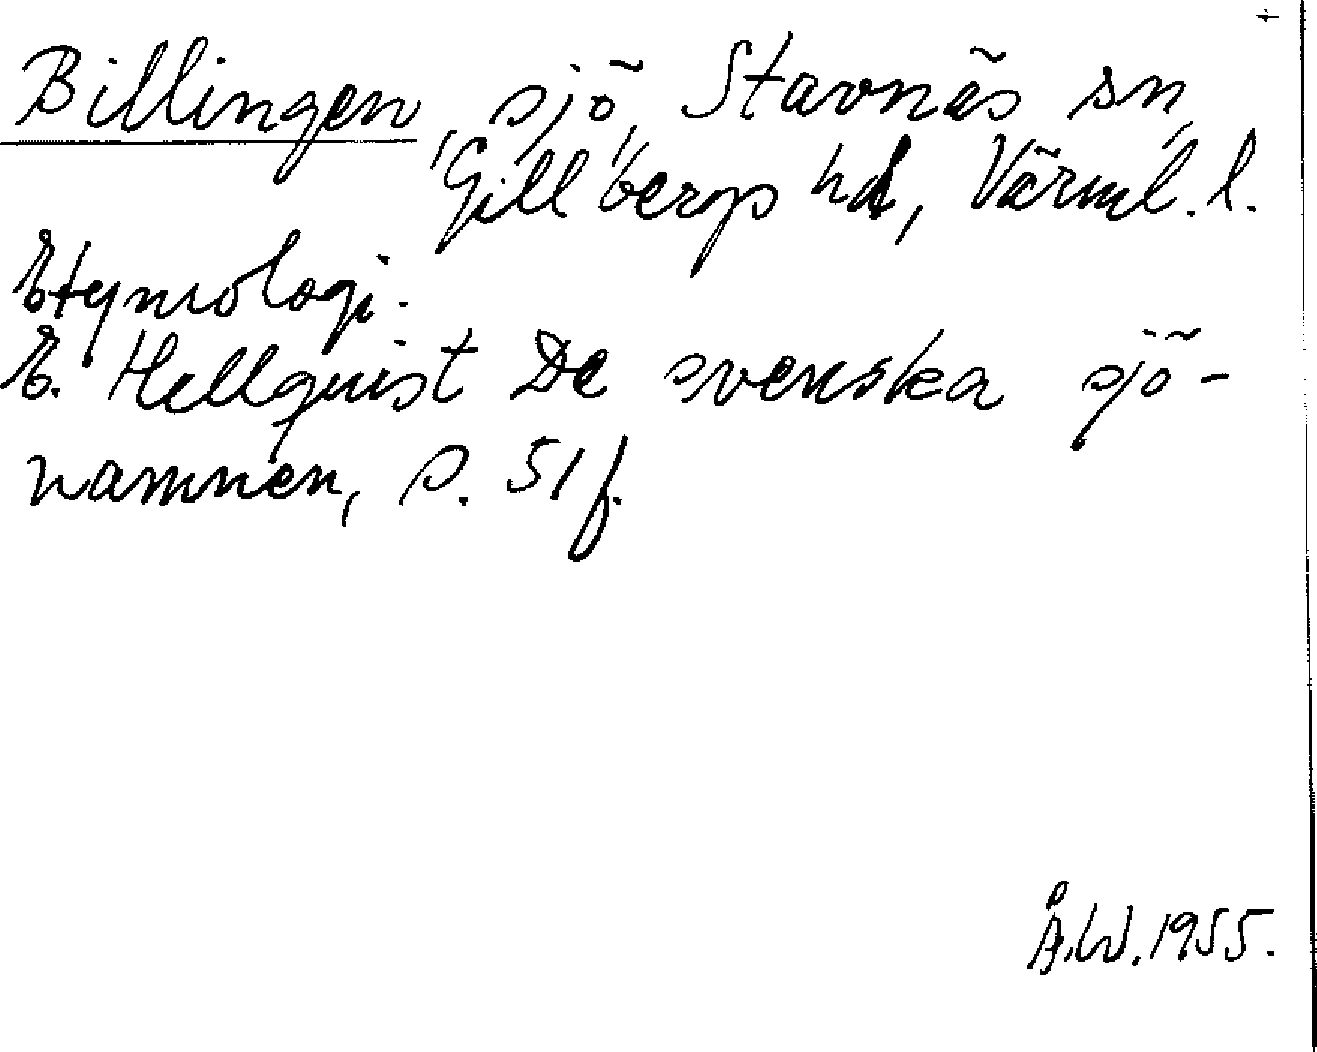 Billingen, sjö, Stavnäs sn,
Gillbergs hd, Värml. l.
Etymologi.
E. Hellquist De svenska sjö-
namnen, s. 51 f.
Å.W. 1955.